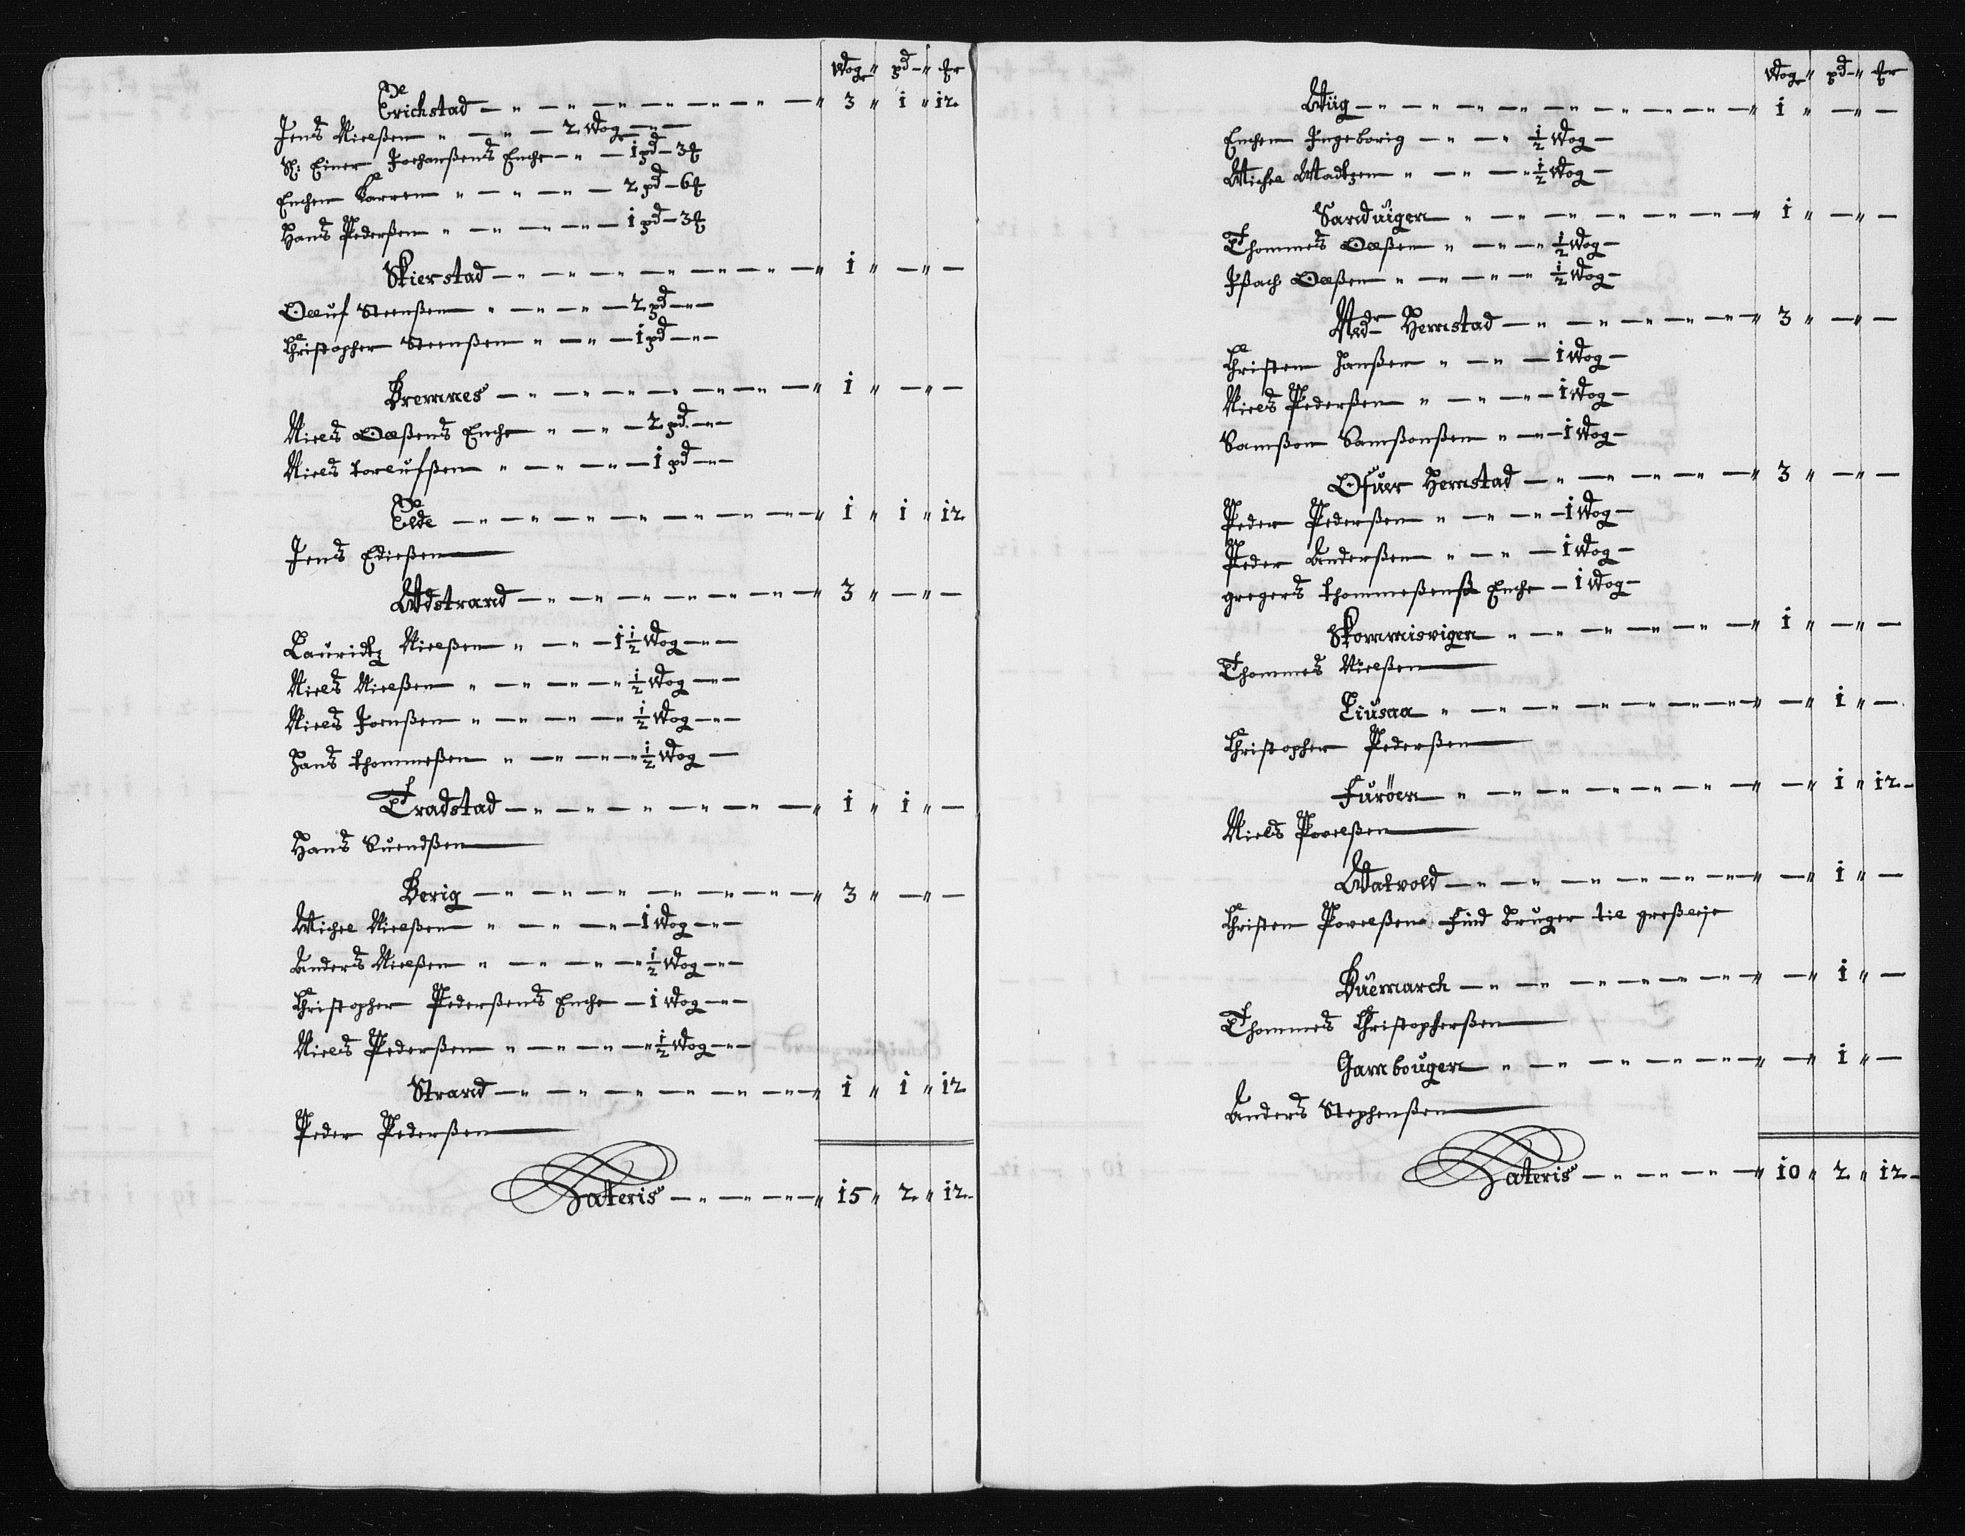 Wog " pd - " ℔r
Erichstad — " — " — " — " — " — " 3 " 1 " 12
Jens Nielßen " — " — 2 Wog — " —
Sl: Einer Joehanßens Enche — " — 1 pd — 3 ℔
Enchen Karren " — " — " — 2 pd — 6 ℔
Hans Pederßen " — " — " — 1 pd — 3 ℔
Skierstad — " — " — " — " — " — " 1 " — " —
Oeluf Steenßen " — " — " — 2 pd — " —
Christopher Steenßen " — " — 1 pd — " —
Bremnes — " — " — " — " — " — " 1 " — " —
Niels Oelßens Enche " — " — 2 pd — " —
Niels torlufßen " — " — " — 1 pd — " —
Elde — " — " — " — " — " — " 1 " 1 " 12
Jens Edießen
Wdstrand — " — " — " — " — " — " 3 " — " —
Lauridtz Nielßen " — " — 1 1/2 Wog — " —
Niels Nielßen " — " — " — " 1/2 Wog — " —
Niels Joenßen " — " — " — " 1/2 Wog — " —
Hans thommeßen " — " — " — " 1/2 Wog —
Tradstad — " — " — " — " — " — " 1 " 1 " —
Hans Suendßen
Berig — " — " — " — " — " — " 3 " — " —
Michel Nielßen " — " — " — 1 Wog — " —
Anders Nielßen " — " — " — " 1/2 Wog — " —
Christopher Pederßens Enche — 1 Wog — " —
Niels Pederßen " — " — " — " 1/2 Wog — " —
Strand — " — " — " — " — " — " 1 " 1 " 12
Peder Pederßen
Lateris — " — " — " 15 " 2 " 12
Wog " pd - " ℔r
Wiig — " — " — " — " — " — " 1 " — " —
Enchen Ingeborig — " — " 1/2 Wog —
Michel Madtzen " — " — " 1/2 Wog —
Sanduigen — " — " — " — " — " 1 " — " —
Thommes Oelßen " — " — " 1/2 Wog —
Ißach Oelßen " — " — " — 1/2 Wog —
Nedr Hernstad — " — " — " — " — " 3 " — " —
Christen Hanßen " — " — 1 Wog —
Niels Pederßen " — " — " — 1 Wog —
Samßon Samßonßen " — " — 1 Wog —
Ofuer Hernstad — " — " — " — " — " 3 " — " —
Peder Pederßen " — " — " — 1 Wog —
Peder Anderßen " — " — " — 1 Wog —
gregers thommeßenß Enche — 1 Wog —
Skommisvigen " — " — " — " — " 1 " — " —
Thommes Nielßen
Liusaa " — " — " — " — " — " — " 1 " —
Christopher Pederßen
Furöen " — " — " — " — " — " — " 1 " 12
Niels Povelßen
Watvold — " — " — " — " — " — " 1 " —
Christen Povelßen Find bruger til greßleje
Buemarch — " — " — " — " — " — " 1 " —
Thommes Christopherßen
Gambougen " — " — " — " — " — " 1 " —
Anders Stephenßen
Lateris — " — " — " 10 " 2 " 12